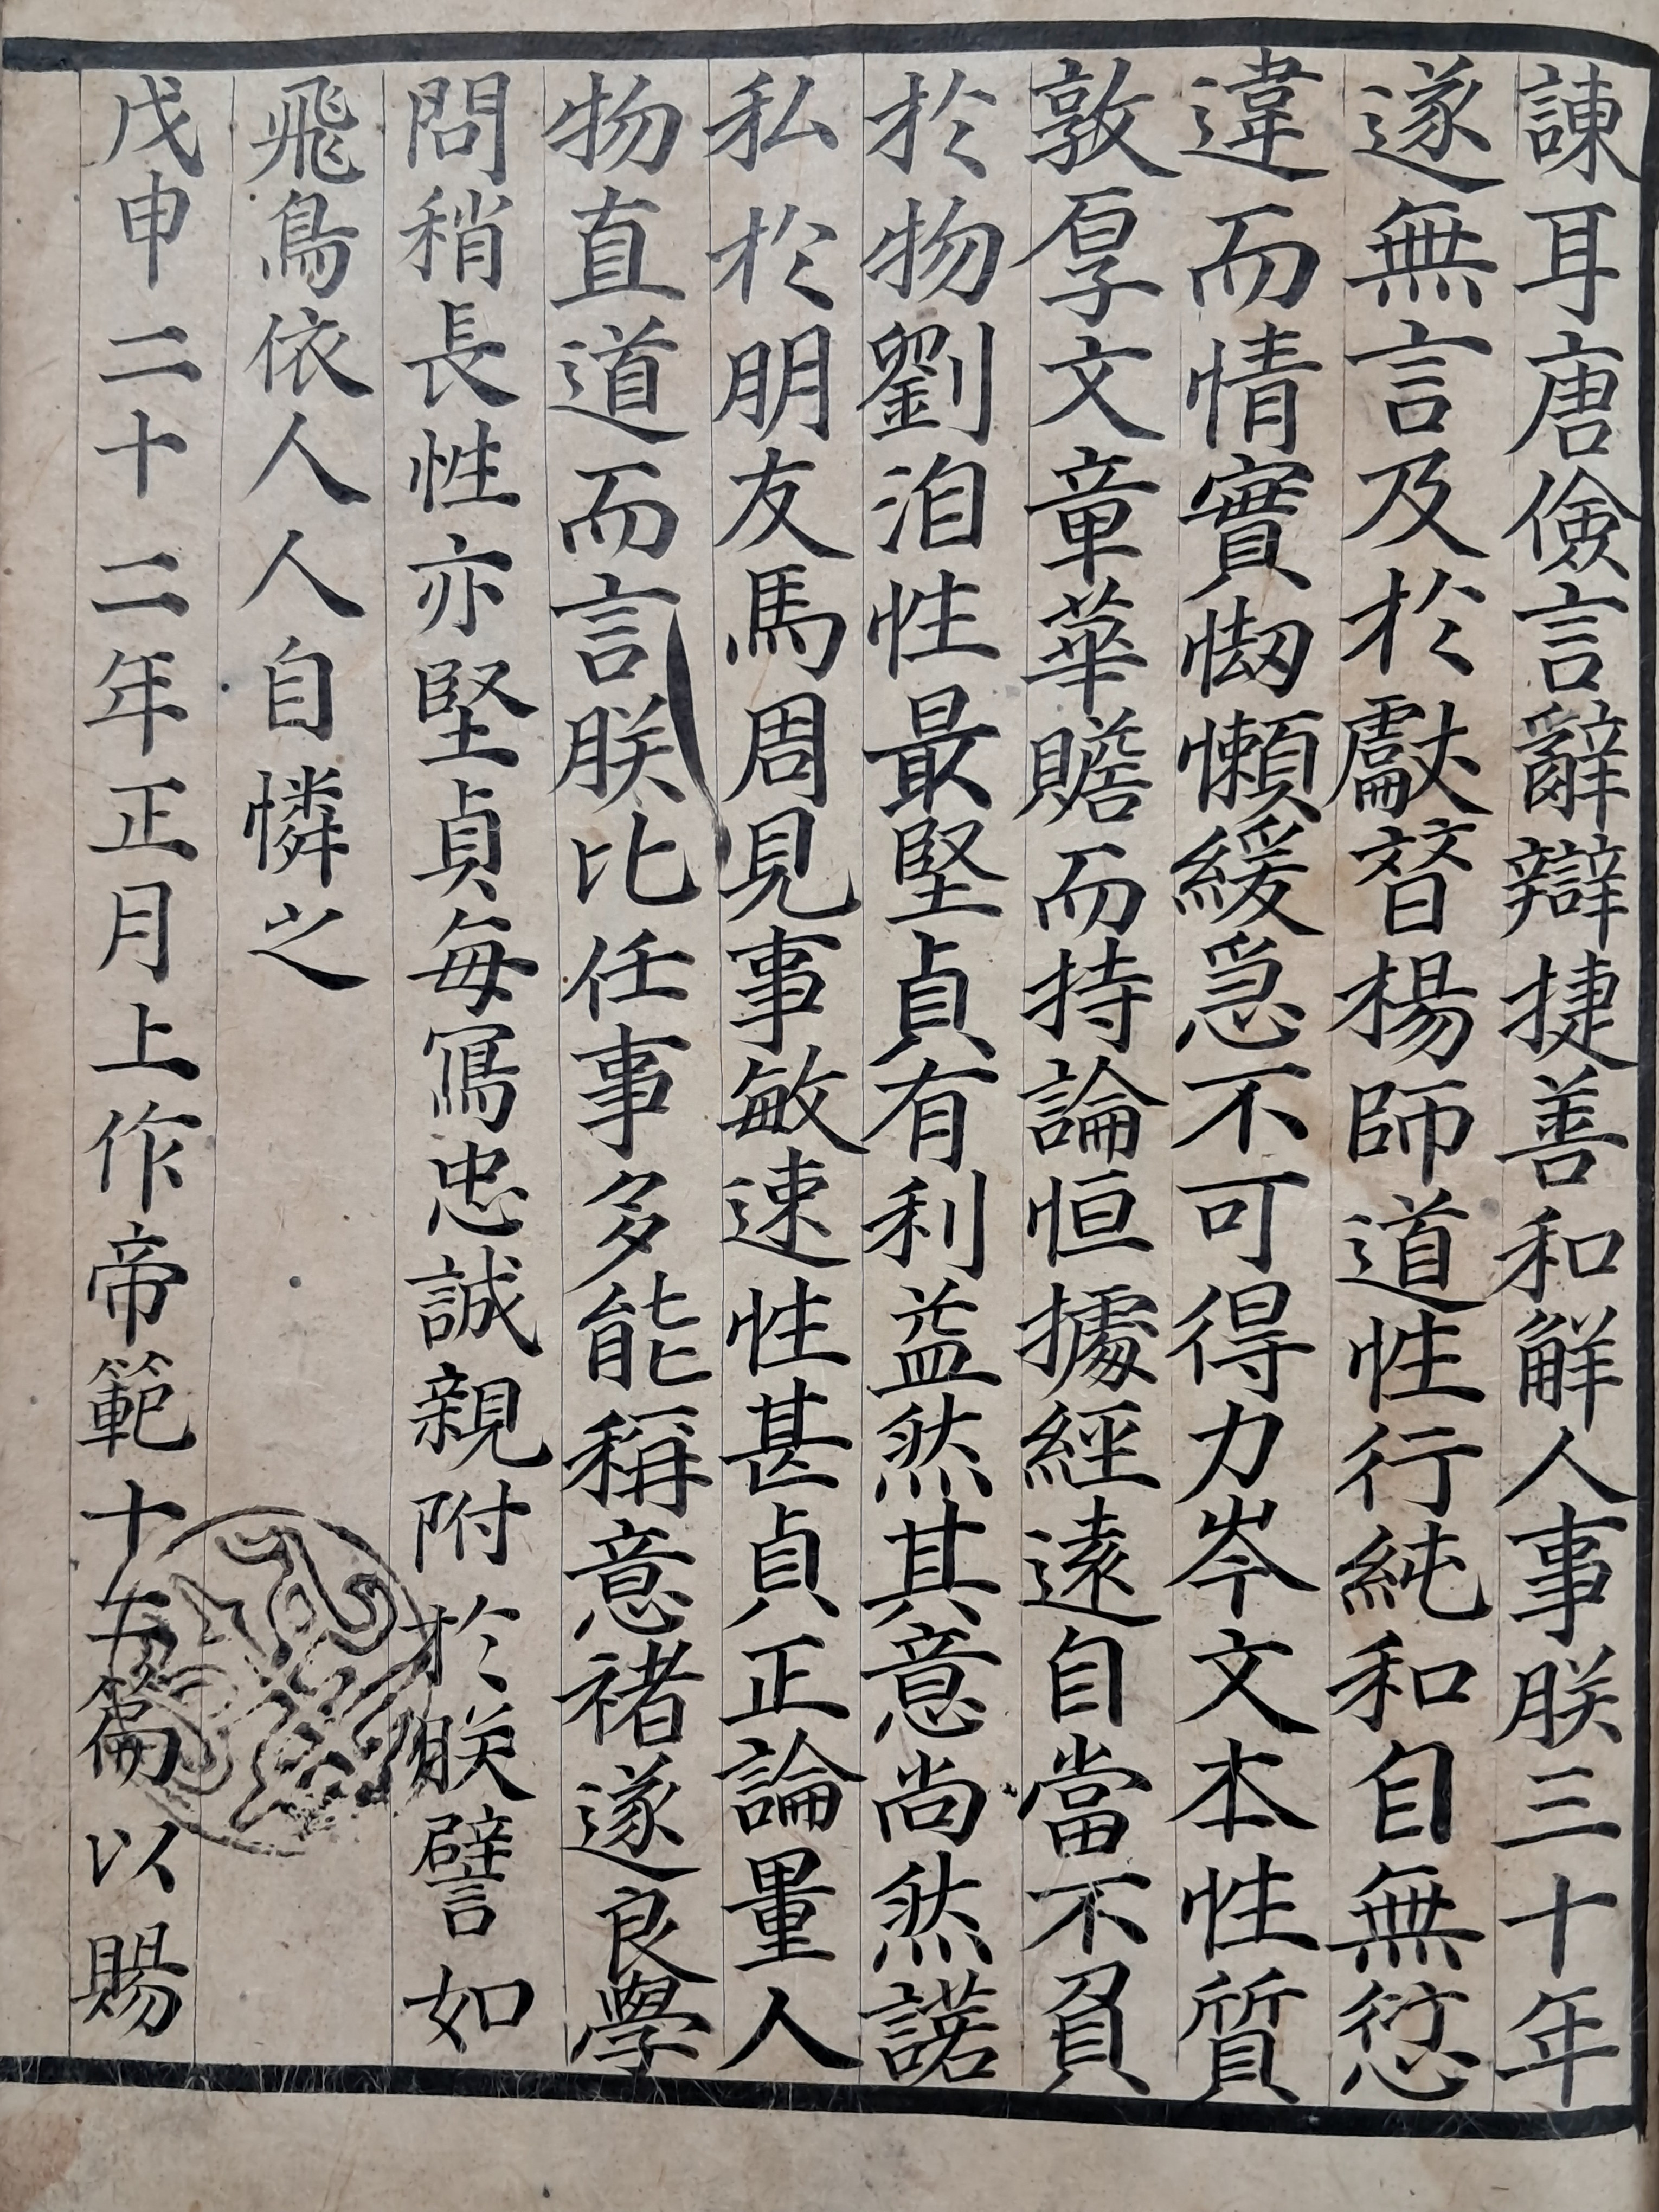 諫耳唐儉言辭辯捷善和解人事朕三十年
遂無言及於獻替楊師道性行純和自無愆
違而情實怯懶緩急不可得力岑文本性質
敦厚文章華贍而持論恒據經遠自當不負
於物劉洎性最堅貞有利益然其意尚然諾
私於朋友馬周見事敏速性甚貞正論量人
物直道而言朕比任事多能稱意褚遂良學
問稍長性亦堅貞每寫忠誠親附於朕譬如
飛鳥依人人自憐之
戊申二十二年正月上作帝範十二篇以賜